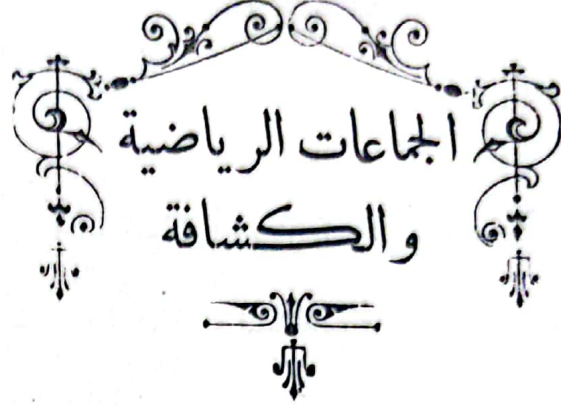 الجماعات الرياضية
والكشافة